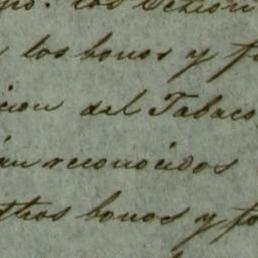 los
n los bonos y
cion del Tabaco
án reconocidos
otros bonos y